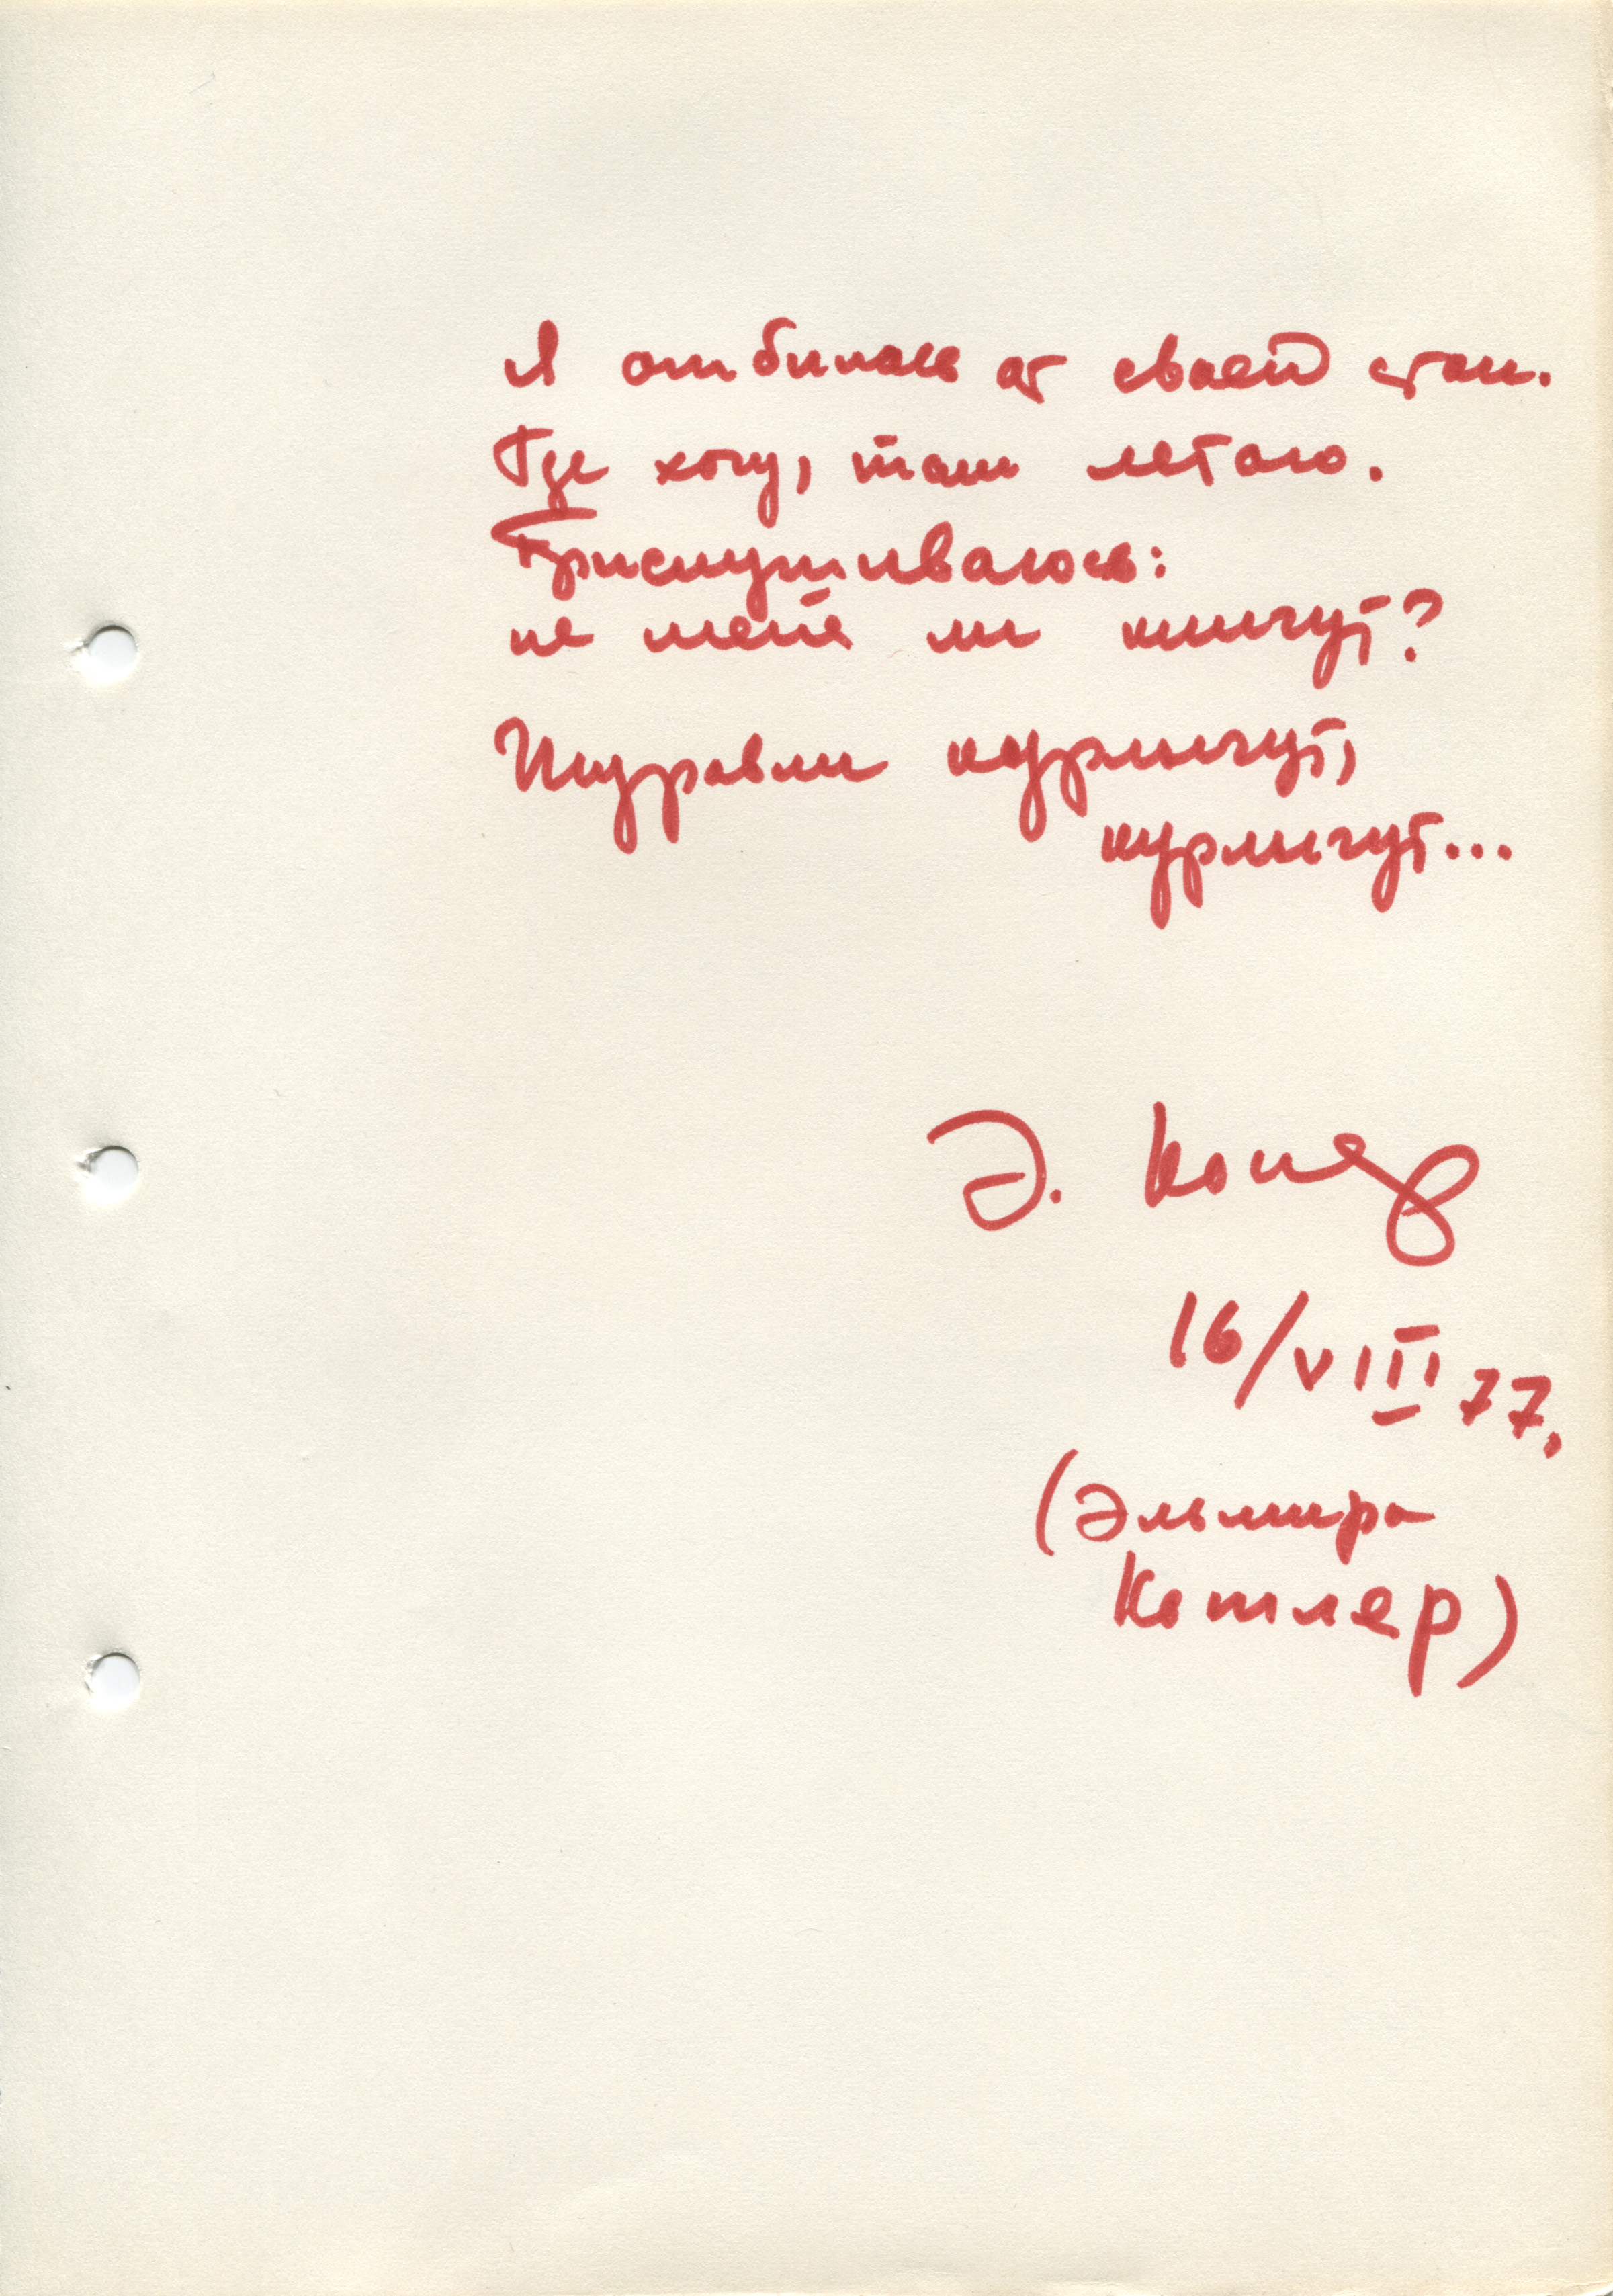 Я отбилась от своей стаи.
Где хочу, там летаю.
Прислушиваюсь:
не меня ли кличут?
Журавли курлычут,
курлычут...
Э. Котлер
16/VIII 77.
(Эльмира
Котлер)